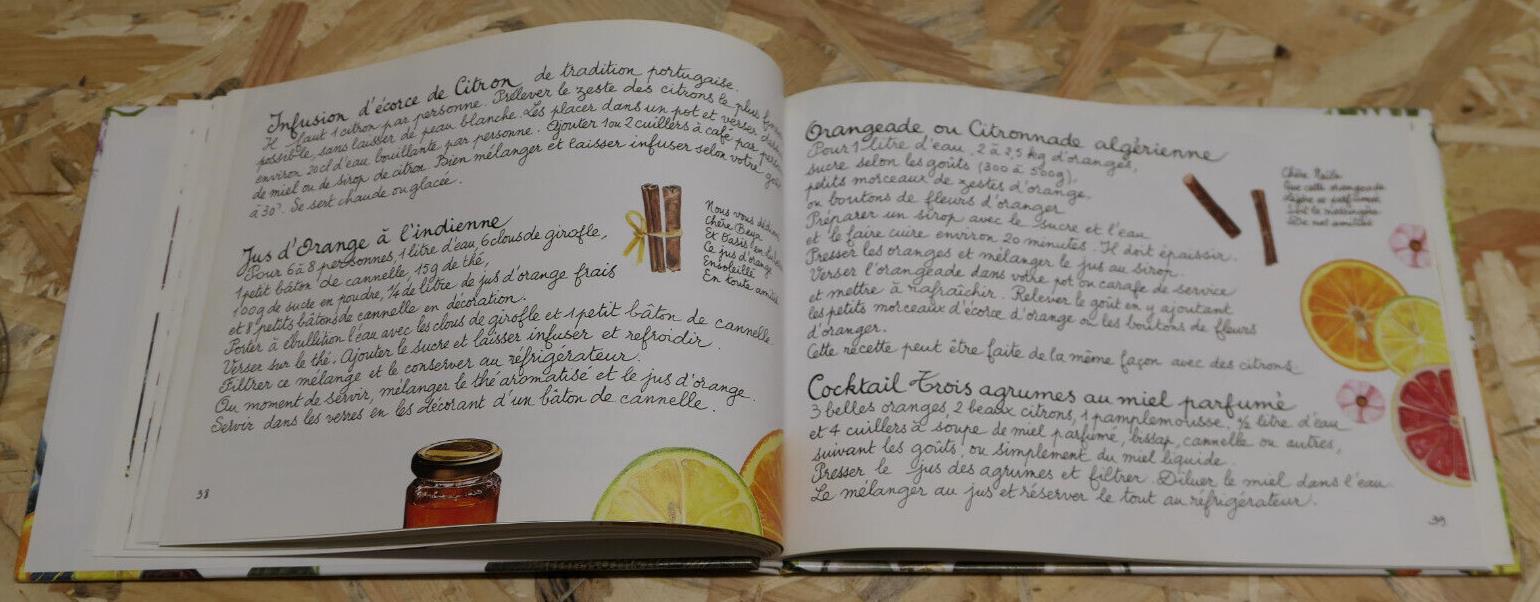 Infusion d'écorce de Citron de tradition portugaise.
Il faut 1 citron par personne. Prélever le zeste des citrons le plus
possible, sans laisser de peau blanche. Les placer dans un pot et verser dessus
environ 20cl d'eau bouillante par personne. Ajouter 1 ou 2 cuillers à café par
de miel ou de sirop de citron. Bien mélanger et laisser infuser selon votre goût
à 30'. Se sert chaude ou glacée.
Jus d'Orange à l'indienne
Pour 6 à 8 personnes, 1 litre d'eau 6 clous de girofle,
1 petit bâton de cannelle, 15g de thé,
100g de sucre en poudre, ¼ de litre de jus d'orange frais
et 8 petits bâtons de cannelle en décoration.
Porter à ébullition l'eau avec les clous de girofle et 1 petit bâton de cannelle
Verser sur le thé. Ajouter le sucre et laisser infuser et refroidir.
Filtrer ce mélange et le conserver au réfrigérateur.
Au moment de servir, mélanger le thé aromatisé et le jus d'orange.
Servir dans les verres en les décorant d'un bâton de cannelle.
Nous vous
Chère Beya
Et
Ce jus d'orange
Ensoleillé
En toute
38
Orangeade ou Citronnade algérienne
Pour 1 litre d'eau, 2 à 2,5 kg d'oranges,
sucre selon les goûts (300 à 500g),
petits morceaux de zestes d'orange
ou boutons de fleurs d'oranger
Préparer un sirop avec le sucre et l'eau
et le faire cuire environ 20 minutes. Il doit épaissir.
Presser les oranges et mélanger le jus au sirop.
Verser l'orangeade dans votre pot ou carafe de service
et mettre à rafraîchir. Relever le goût en y ajoutant
les petits morceaux d'écorce d'orange ou les boutons de fleurs
d'oranger.
Cette recette peut être faite de la même façon avec des citrons
Chère
Que cette orangeade
Légère et parfumée
Soit la messagère
De mes amitiés
Cocktail Trois agrumes au miel parfumé
3 belles oranges, 2 beaux citrons, 1 pamplemousse. ½ litre d'eau
et 4 cuillers à soupe de miel parfumé, bissap, cannelle ou autres,
suivant les goûts, ou simplement du miel liquide.
Presser le jus des agrumes et filtrer. Diluer le miel dans l'eau
Le mélanger au jus et réserver le tout au réfrigérateur.
39